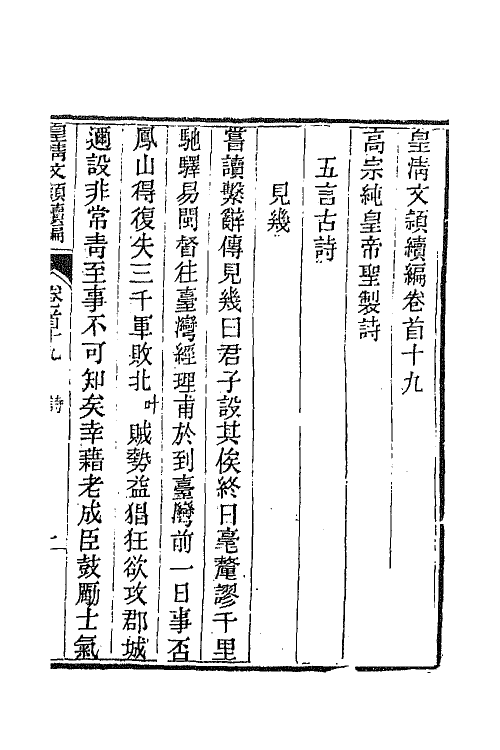 皇淸文頴續編卷首十九
高宗純皇帝聖製詩
五言古詩
見幾
嘗讀繫辭傳見幾曰君子設其俟終日毫釐謬千里
馳驛易閩督往臺灣經理甫於到臺灣前一日事否
鳳山得復失三千軍敗北叶賊勢益猖狂欲攻郡城
邇設非常靑至事不可知矣幸藉老成臣鼓勵士氣
皇淸文頴續編
卷首十九
詩
一